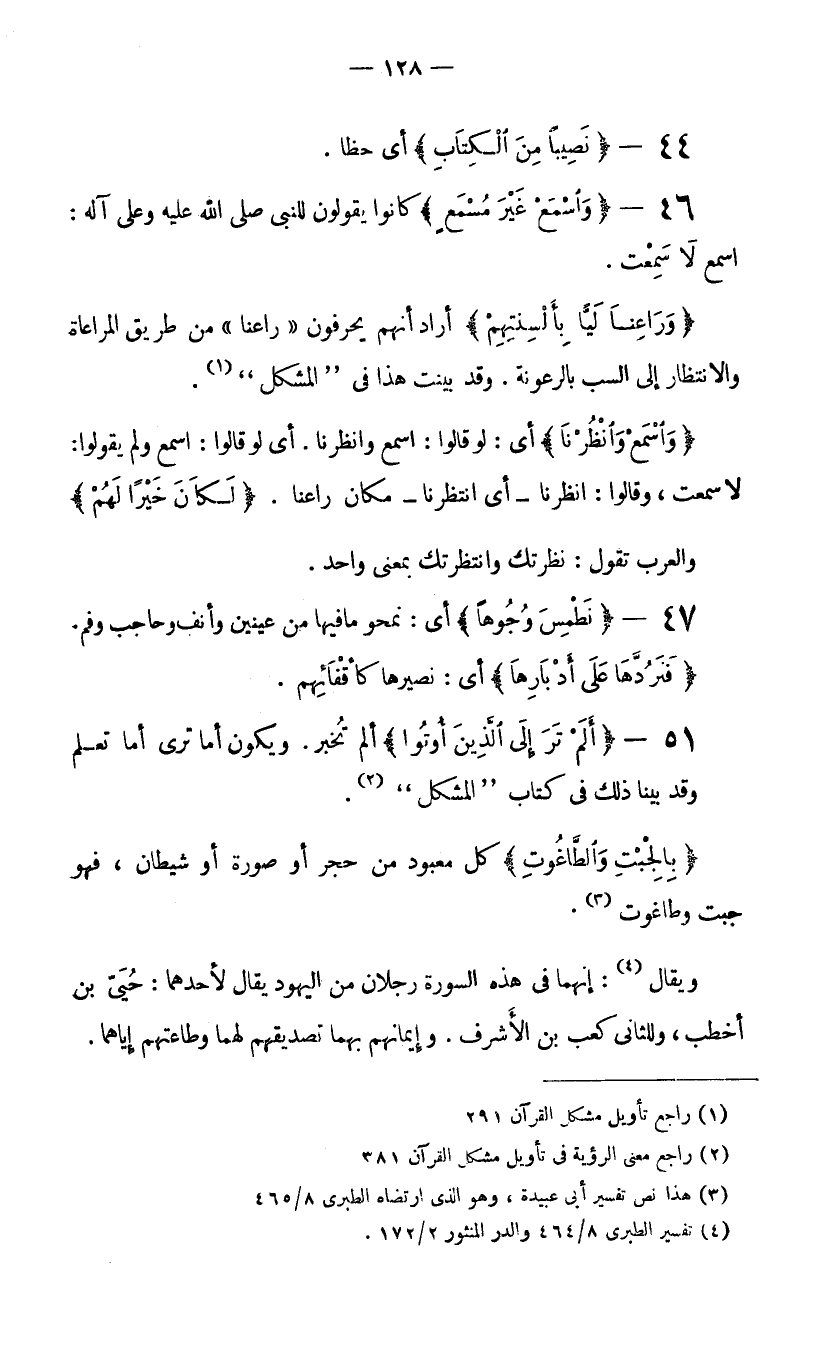 — ١٢٨ —
٤٤ — ﴿ نَصِيبًا مِنَ ٱلْكِتَابِ ﴾ أى حظا .
٤٦ — ﴿ وَٱسْمَعْ غَيْرَ مُسْمَعٍ ﴾ كانوا يقولون للنبى صلى الله عليه وعلى آله :
اسمع لَا سَمِعْت .
﴿ وَرَاعِنَا لَيًّا بِأَلْسِنَتِهِمْ ﴾ أراد أنهم يحرفون « راعنا » من طريق المراعاة
والانتظار إلى السب بالرعونة . وقد بينت هذا فى ” المشكل “ (١) .
﴿ وَٱسْمَعْ وَٱنْظُرْنَا ﴾ أى : لو قالوا : اسمع وانظرنا . أى لو قالوا : اسمع ولم يقولوا:
لا سمعت ، وقالوا : انظرنا – أى انتظرنا – مكان راعنا . ﴿ لَكَانَ خَيْرًا لَهُمْ ﴾
والعرب تقول : نظرتك وانتظرتك بمعنى واحد .
٤٧ — ﴿ نَطْمِسَ وُجُوهًا ﴾ أى : نمحو مافيها من عينين وأنف وحاجب وفم.
﴿ فَنَرُدَّهَا عَلَى أَدْبَارِهَا ﴾ أى : نصيرها كأقْفَائِهم .
٥١ — ﴿ أَلَمْ تَرَ إِلَى ٱلَّذِينَ أُوتُوا ﴾ ألم تُخبر . ويكون أما ترى أما تعلم
وقد بينا ذلك فى كتاب ” المشكل “ (٢) .
﴿ بِالْجِبْتِ وَٱلطَّاغُوتِ ﴾ كل معبود من حجر أو صورة أو شيطان ، فهو
جبت وطاغوت (٣) .
ويقال (٤) : إنهما فى هذه السورة رجلان من اليهود يقال لأحدهما : حُيَىّ بن
أخطب ، وللثانى كعب بن الأَشرف . وإيمانهم بهما تصديقهم لهما وطاعتهم إياهما .
(١) راجع تأويل مشكل القرآن ٢٩١
(٢) راجع معنى الرؤية فى تأويل مشكل القرآن ٣٨١
(٣) هذا نص تفسير أبى عبيدة ، وهو الذى ارتضاه الطبرى ٨/٤٦٥
(٤) تفسير الطبرى ٨/٤٦٤ والدر المنثور ٢/١٧٢ .